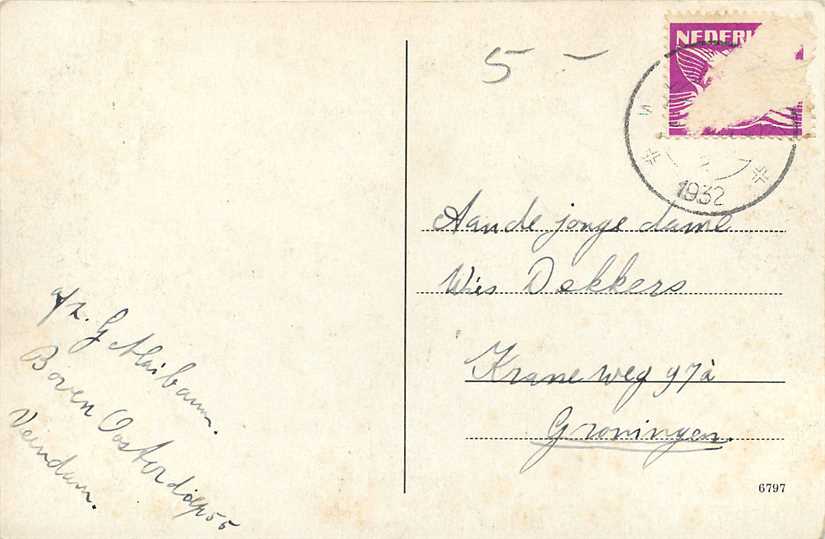 5 -
NEDERL
S
2
1932
Aan de jonge dame
Wies Dekkers
Kraneweg 97a
Groningen.
afz. G. Maibaum.
Boven Oosterdiep 55
Veendam.
6797